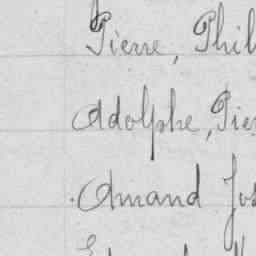 Pierre, Phil
Adolphe, Pier
Amand Jos